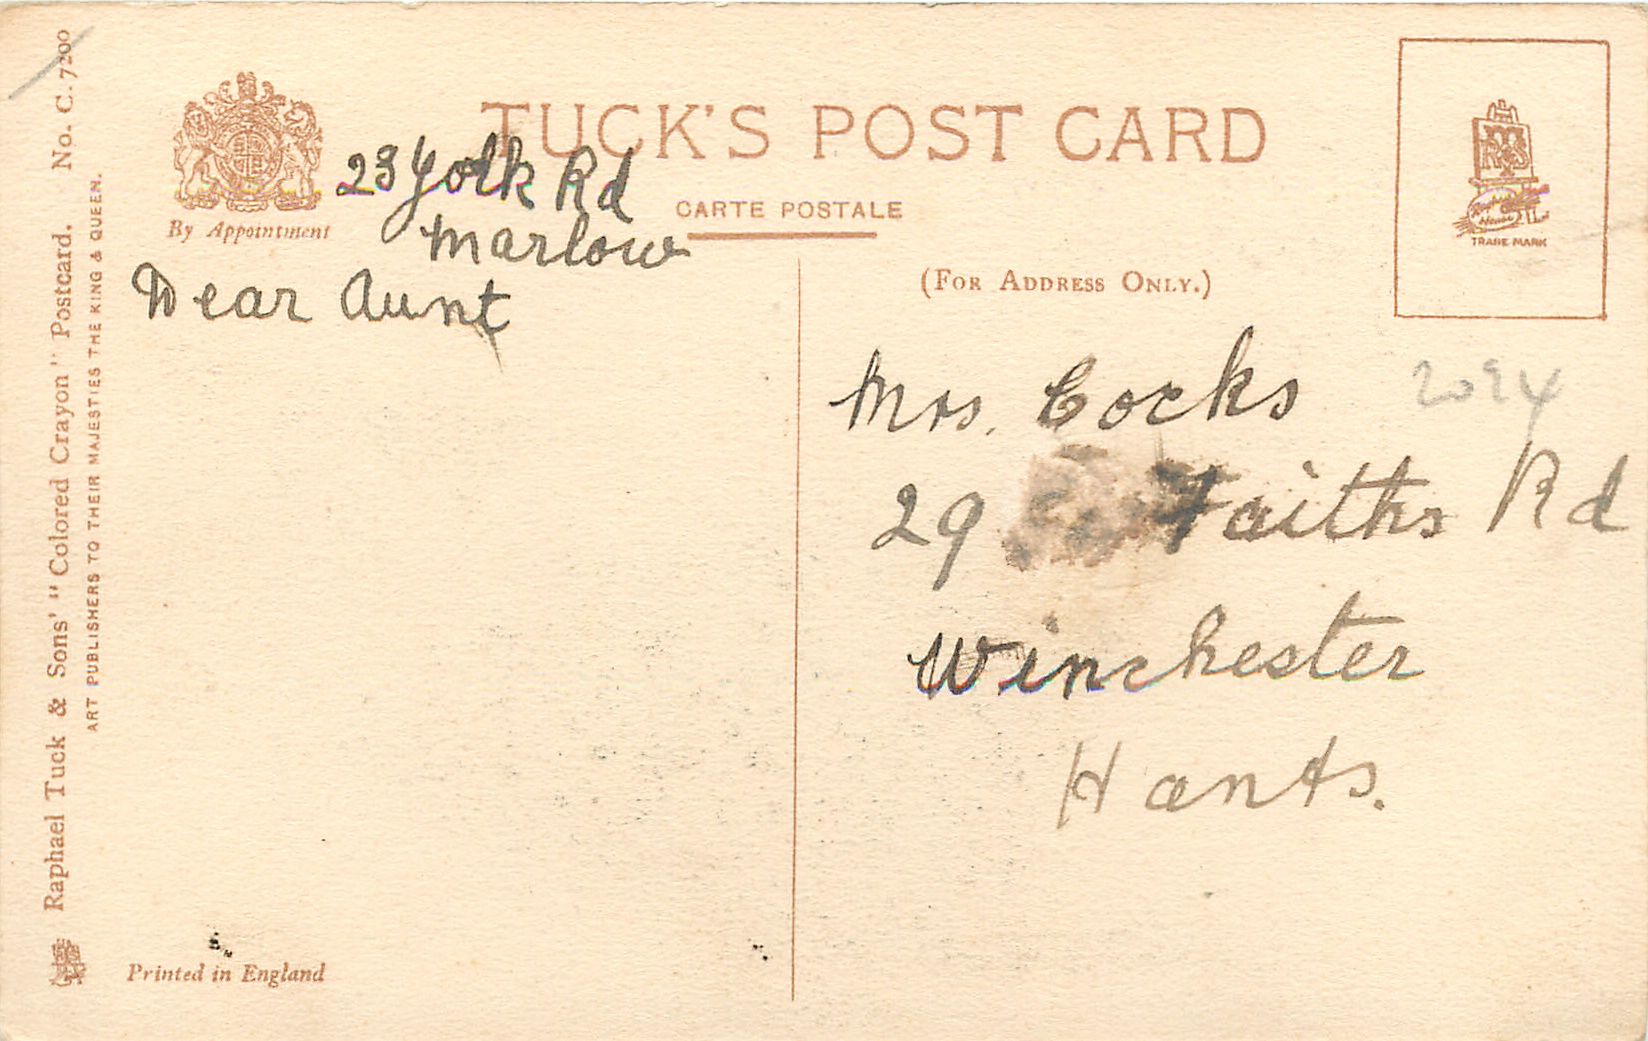 TUCK'S POST CARD
CARTE POSTALE
By Appointment
(FOR ADDRESS ONLY.)
TRADE MARK
23 York Rd
Marlow
Dear Aunt
Mrs. Cocks
29 Faiths Rd
Winchester
Hants.
2094
Raphael Tuck & Sons' "Colored Crayon" Postcard. No. C. 7200
ART PUBLISHERS TO THEIR MAJESTIES THE KING & QUEEN.
Printed in England